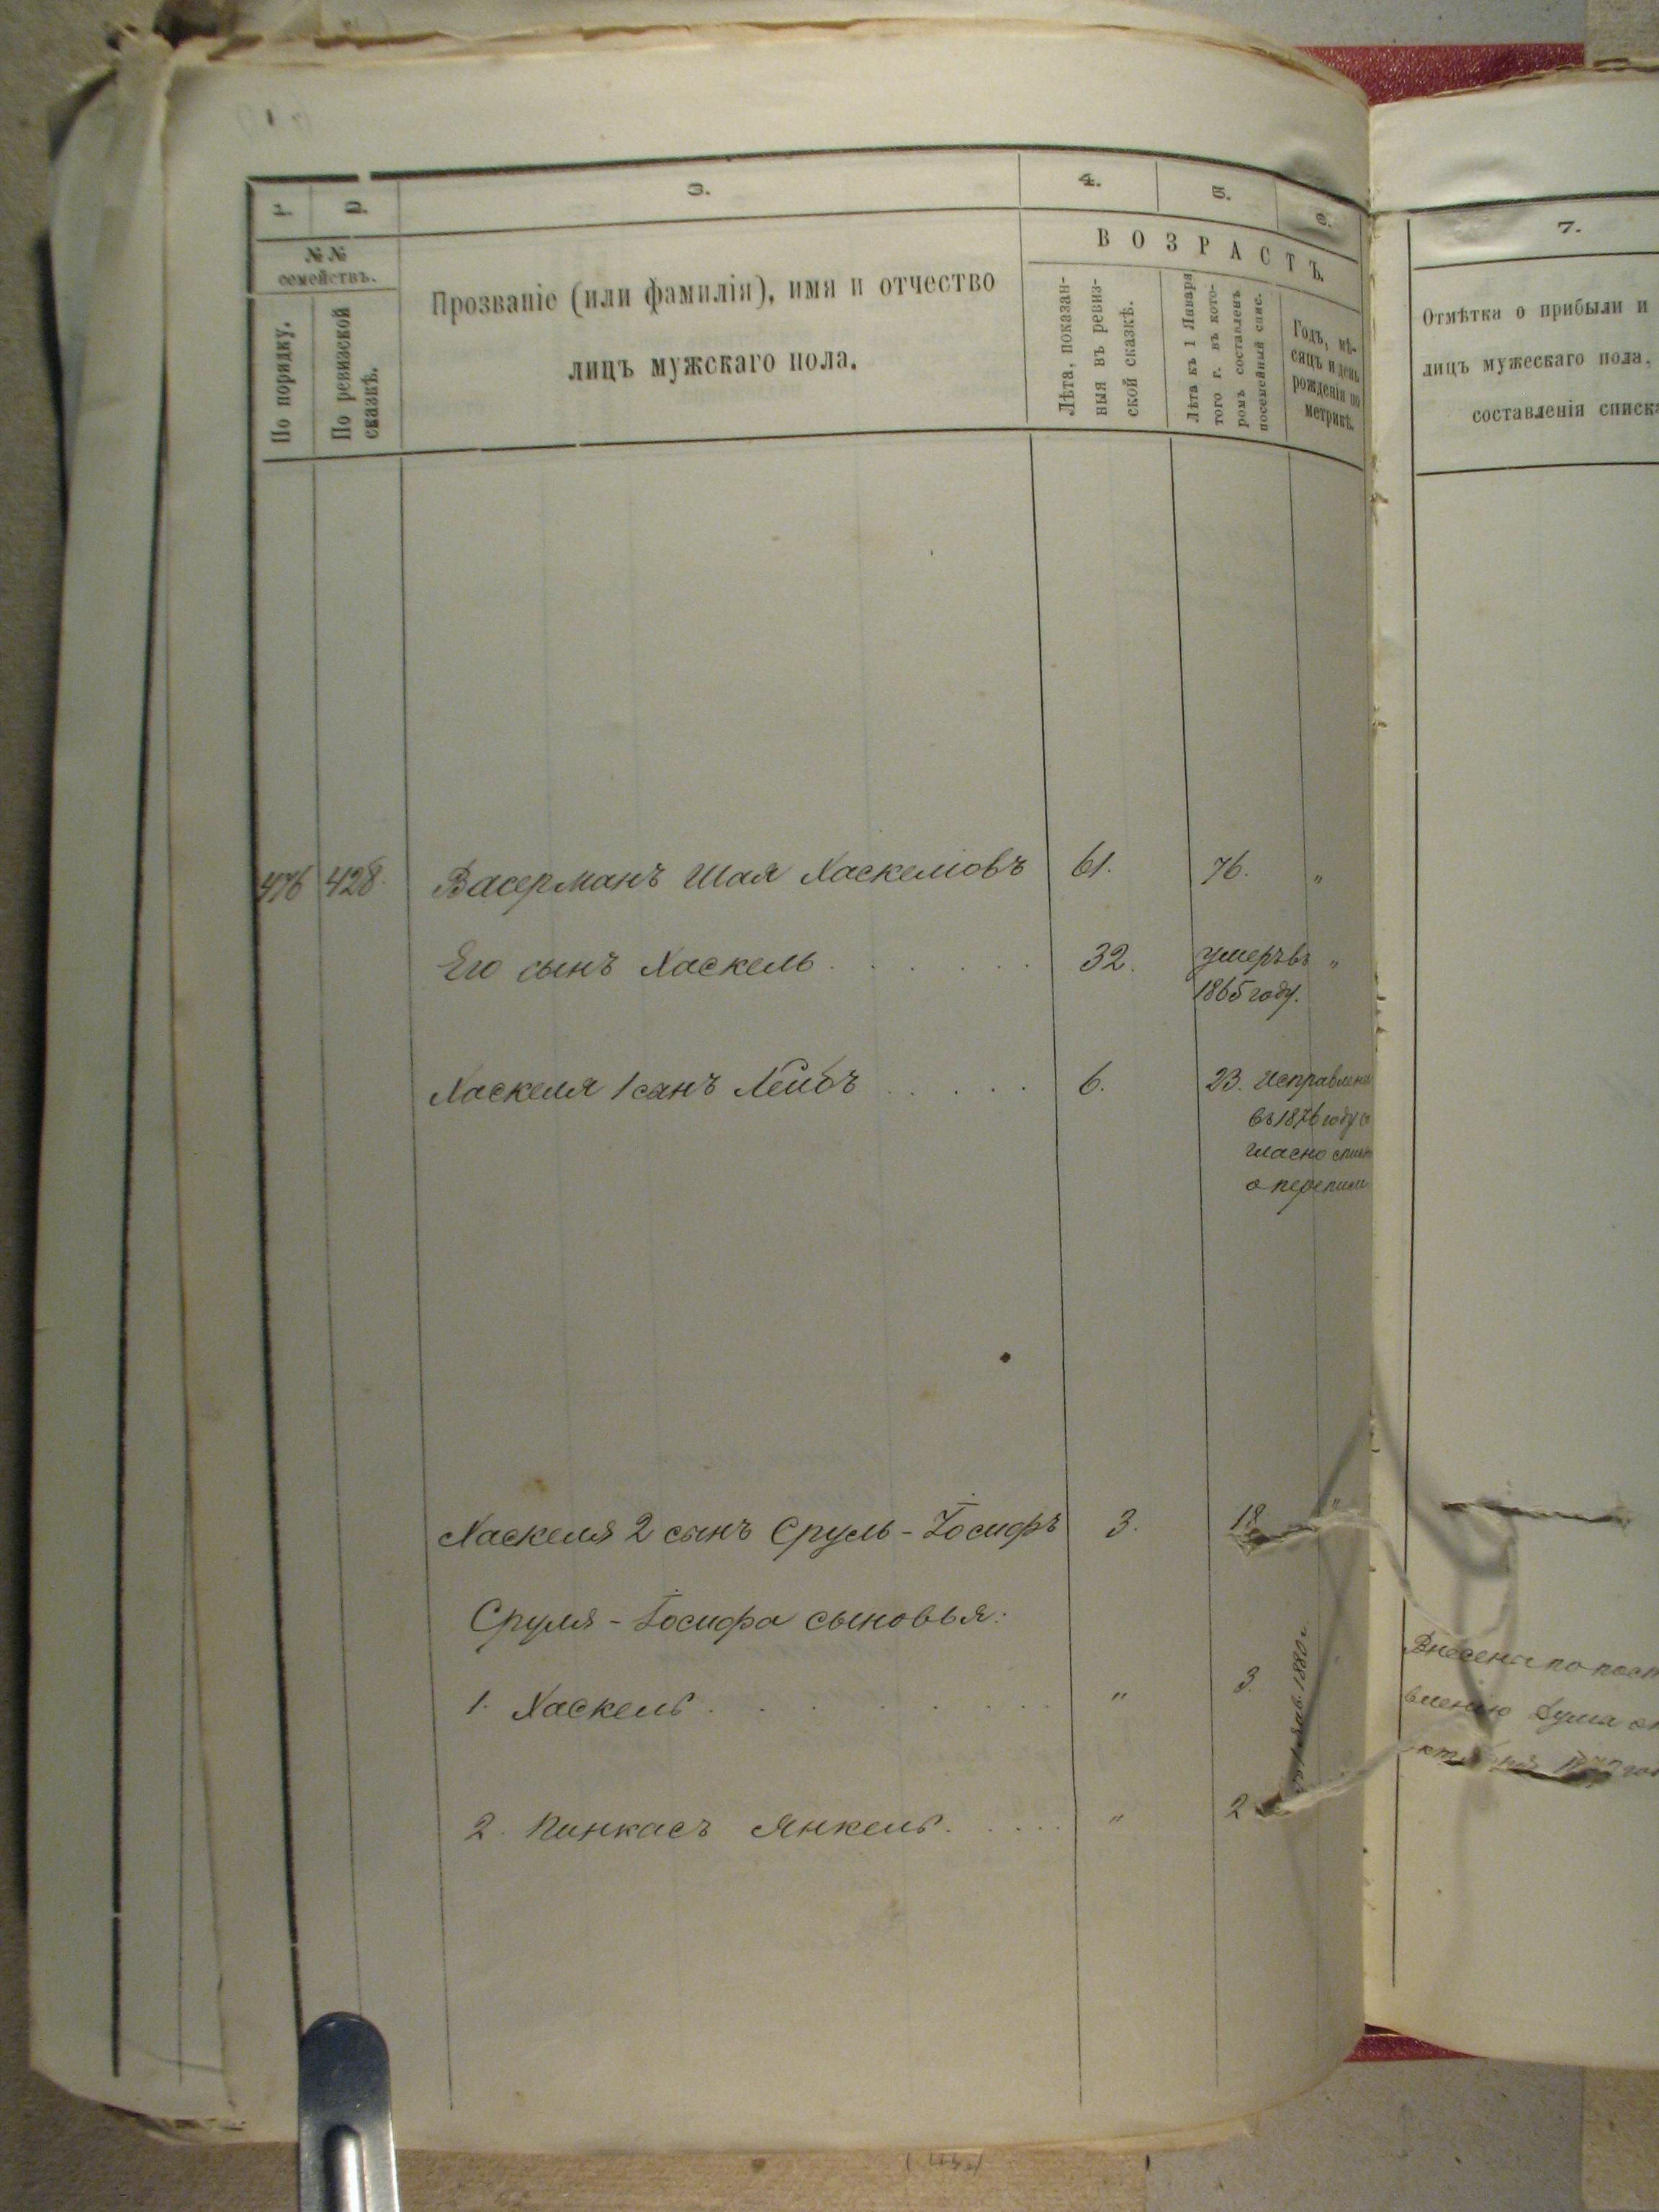 1.
2.
3.
4.
5.
6.
№ №
семействъ.
По порядку.
По ревизской
сказкѣ.
Прозваніе (или фамилія), имя и отчество
лицъ мужскаго пола.
ВОЗРАСТЪ.
Лѣта, показан-
ныя въ ревиз-
ской сказкѣ.
Лѣта къ 1 Января
того г. въ кото-
ромъ составленъ
посемейный спис.
Годъ, мѣ-
сяцъ и день
рожденія по
метрикѣ.
476 428. Васерманъ Шая Хаскелiовъ 61. 76. "
Его сынъ Хаскель . . . . . . 32. умеръ въ "
1865 году.
Хаскеля 1 сынъ Лейбъ . . . . . 6. 23. Исправлена
въ 1876 году со
гласно
о переписи
Хаскеля 2 сынъ Сруль-Іосифъ 3. 18 "
Сруля-Іосифа сыновья:
1. Хаскель . . . . . . . . " 3.
2. Пинкасъ Янкель . . . . . " 2
1 янв. 1880 г.
7.
Отмѣтка о прибыли и
лицъ мужескаго пола,
составленія списка
Внесены по
вленію Думы